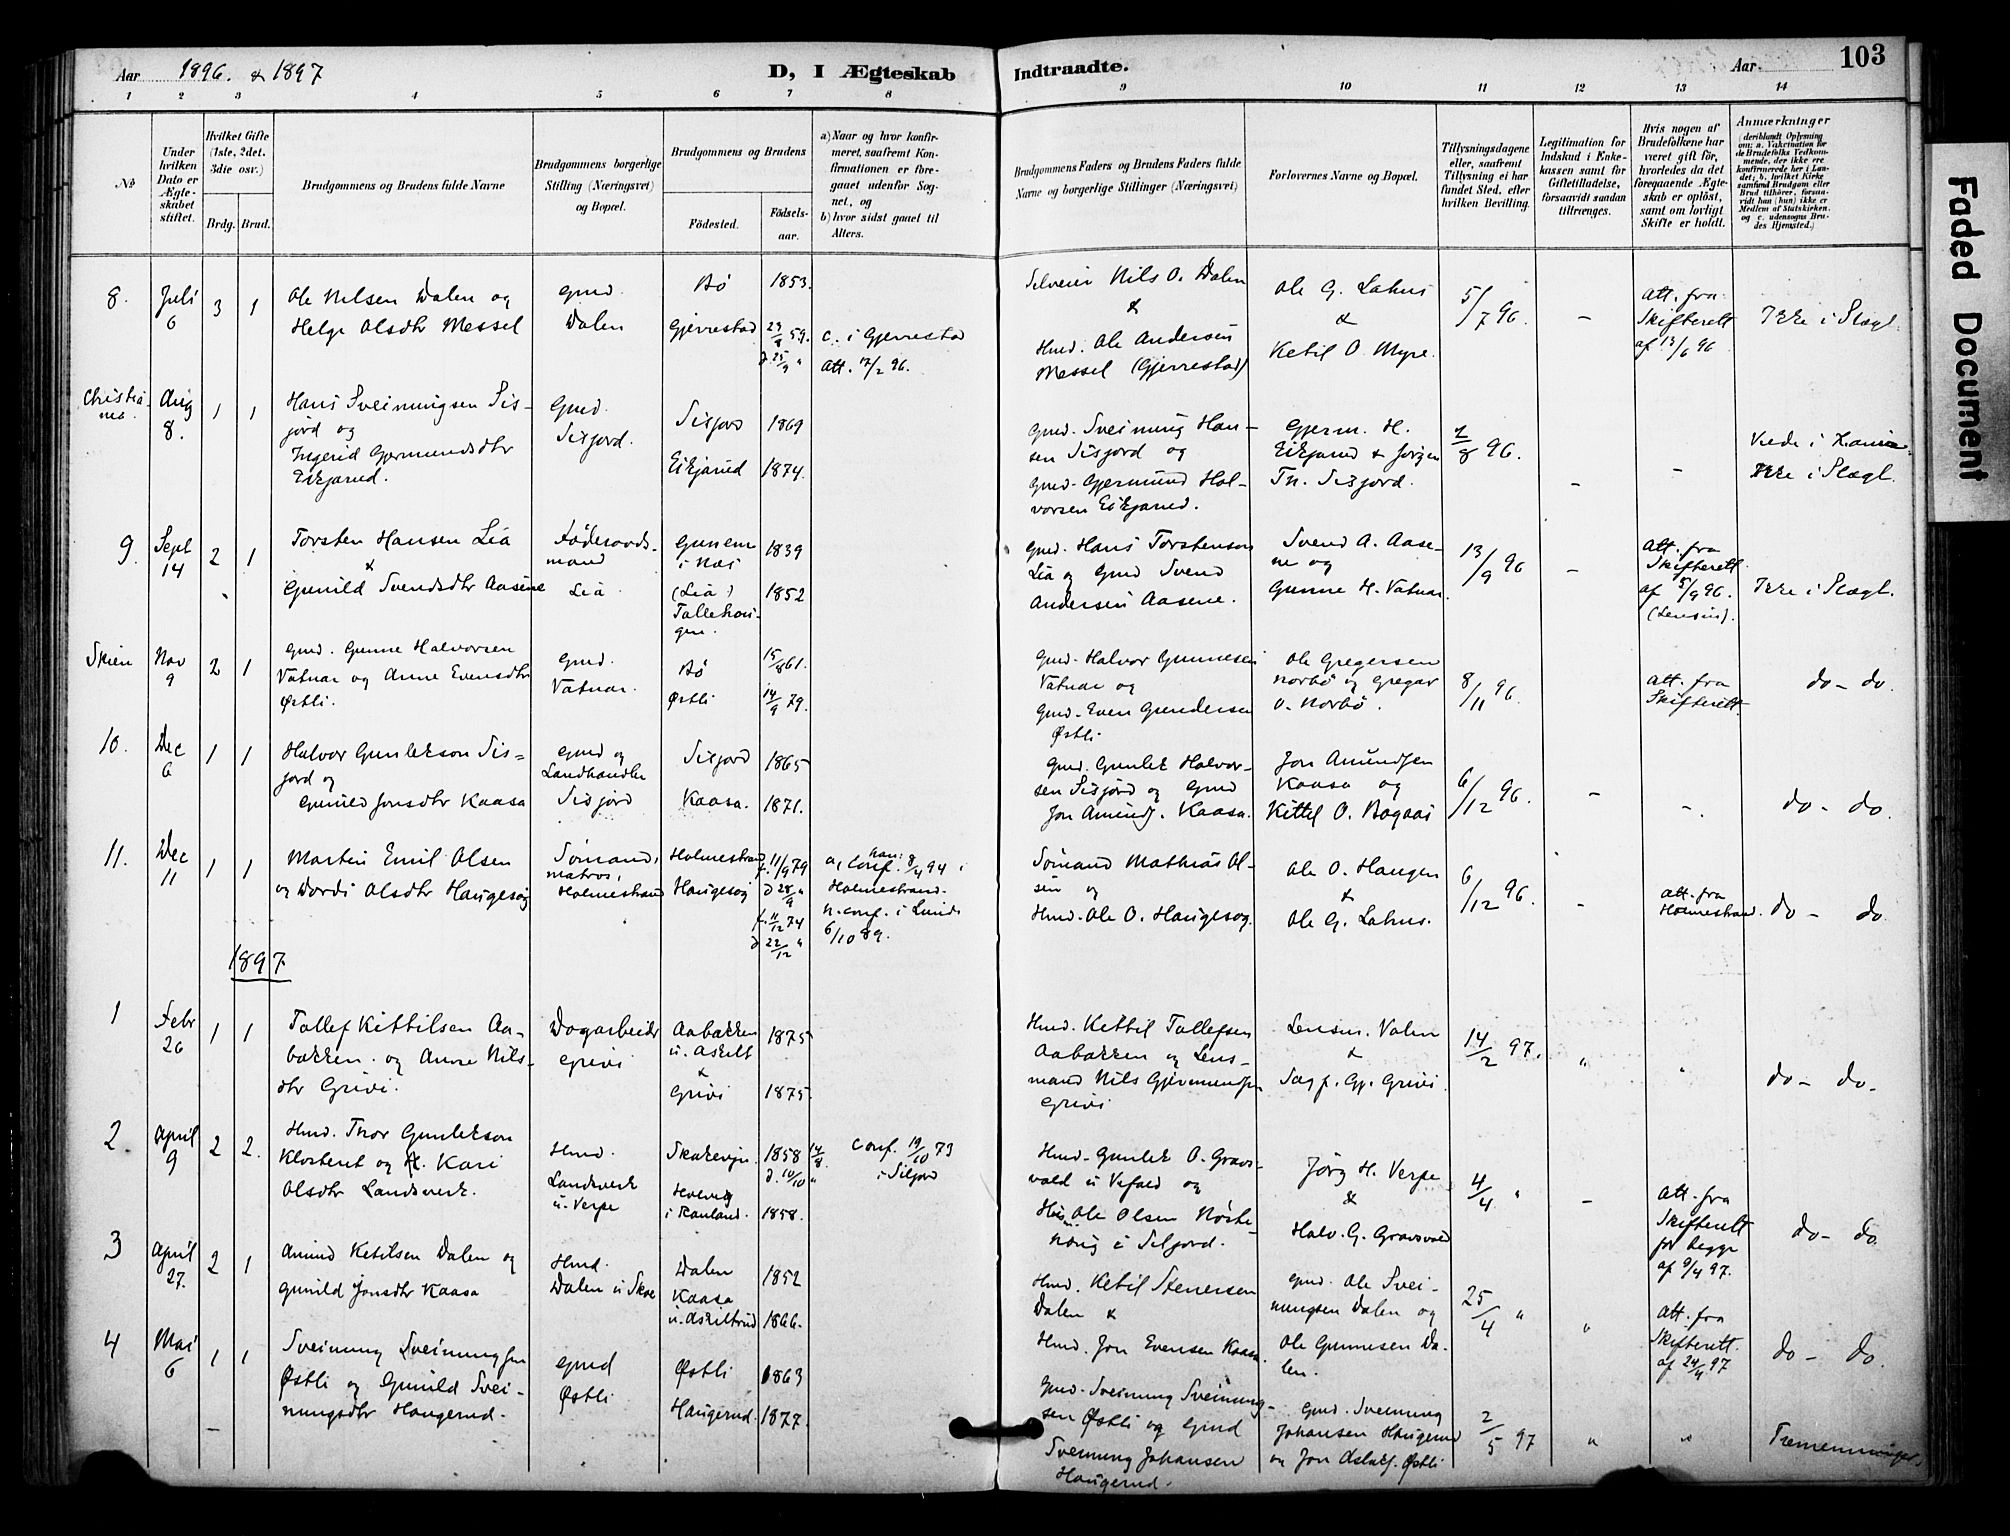 Aar 1896. & 1897
D, I Ægteskab
Indtraadte.
Aar
103
1 2 3 4 5 6 7 8 9 10 11 12 13 14
No
Under hvilken Dato er Ægteskabet stiftet.
Hvilket Gifte (1ste, 2det, 3die osv.)
Brdg. Brud.
Brudgommens og Brudens fulde Navne
Brudgommens borgerlige Stilling (Næringsvei) og Bopæl.
Brudgommens og Brudens
Fødested.
Fødselsaar.
a) Naar og hvor konfirmeret, saafremt Konfirmationen er foregaaet udenfor Sognet, og
b) hvor sidst gaaet til Alters.
Brudgommens Faders og Brudens Faders fulde Navne og borgerlige Stillinger (Næringsvei)
Forlovernes Navne og Bopæl.
Tillysningsdagene eller, saafremt Tillysning ei har fundet Sted, efter hvilken Bevilling.
Legitimation for Indskud i Enkekassen samt for Giftetilladelse, forsaavidt saadan tiltrænges.
Hvis nogen af Brudefolkene har været gift før, hvorledes da det foregaaende Ægteskab er opløst, samt om lovligt Skifte er holdt.
Anmærkninger (deriblandt Oplysning om: a. Vakcination for de Brudefolks Vedkommende, der ikke ere konfirmerede her i Landet; b. hvilket Kirkesamfund Brudgom eller Brud tilhører, forsaavidt han (hun) ikke er Medlem af Statskirken. og c. udensogns Brudes Hjemsted.)
8. Juli 6 3 1
Ole Nilsen Dalen og
Helge Olsdtr Messel
Gmd.
Dalen
Bø 1853.
Gjerrestad 23/8 59.
d. 25/9 "
c. i Gjerrestad
Att. 17/2 96.
Selveier Nils O. Dalen
&
Hmd. Ole Andersen
Messel (Gjerrestad)
Ole G. Lahus
&
Ketil O. Myre.
5/7 96.
–
Att. fra
Skifterett
af 13/6 96
Ikke i Slægt.
Christiania Aug 8. 1 1
Hans Sveinungsen Sisjord og
Ingerid Gjermundsdtr
Eikjarud.
Gmd.
Sisjord.
Sisjord 1869
Eikjarud 1874.
Gmd. Sveinung Hansen Sisjord og
Gmd. Gjermund Halvorsen Eikjarud.
Gjerm. H.
Eikjarud & Jørgen
Th. Sisjord.
2/8 96.
–
–
Viede i Xania.
Ikke i Slægt.
9. Sept 14 2 1
Torsten Hansen Lia
&
Gunild Svendsdtr Aasene
Føderaadsmand
Lia
Gunem
i Næs 1839
(Lia)
Tollehaugen. 1852
Gmd. Hans Torstensen
Lia og Gmd Svend
Andersen Aasene.
Svend A. Aasene og
Gunne H. Vatnar.
13/9 96
–
Att. fra
Skifterett
af 5/9 96.
(Lensm).
Ikke i Slægt.
Skien Nov 9 2 1
Gmd. Gunne Halvorsen
Vatnar og Anne Evensdtr
Østli.
Gmd.
Vatnar.
Bø 15/8 61.
Østli 14/9 79.
Gmd. Halvor Gunnesen
Vatnar og
Gmd. Even Gundersen
Østli
Ole Gregersen
Norbø og Gregar
O. Norbø.
8/11 96.
Att. fra
Skifterett.
do – do.
10. Dec 6 1 1
Halvor Gunlekson Sisjord og
Gunild Jonsdtr Kaasa
Gmd og
Landhandler
Sisjord
Sisjord 1865
Kaasa. 1871.
Gmd. Gunlek Halvorsen Sisjord og Gmd
Jon Amundj. Kaasa.
Jon Amundsen
Kaasa og
Kittel O. Bagaas
6/12 96.
–
–.
do – do.
11. Dec 11 1 1
Martin Emil Olsen
og Dordi Olsdtr Haugesøg
Sømand,
matros,
Holmestrand
Holmestrand f. 11/9 79
Haugesøg d 28/9 "
f. 11/12 74
d 22/12 "
a, han: Conf. 8/4 94 i
Holmestrand.
h. conf. i Lunde
6/10 89.
Sømand Mathias Olsen og
Hmd. Ole O. Haugesøg.
Ole O. Haugen
&
Ole G. Lahus.
6/12 96.
–
att. fra
Holmestrand.
do – do.
1897.
1 Febr 26 1 1
Tollef Kittilsen Aabakken. og Anne Nilsdtr Grivi.
Dagarbeider
Grivi
Aabakken
u. Askilt 1875
&
Grivi 1875.
Hmd. Kettil Tollefsen
Aabakken og Lensmand Nils Gjermundsen
Grivi
Lensm. Valen
&
Tag f. Gj. Grivi.
14/2 97.
"
"
do – do –
2 April 9 2 2.
Hmd. Thor Gunlekson
Klosteret og H. Kari
Olsdtr Landsverk.
Hmd.
Landsverk
u. Verpe
Skarevju. 1858 14/8.
d. 10/10 "
i Rauland. 1858.
Conf. 19/10 73
i Siljord
Hmd. Gunlek O. Gravsvald u Vefald og
Ole Olsen
i Seljord.
Jörg H. Verpe
&
Halv. G. Gravsvald
4/4 "
–
Att. fra
Skifterett
for begge
af 9/4 97.
do – do
3 April 27. 2 1
Amund Ketilsen Dalen og
Gunild Jonsdtr Kaasa
Hmd.
Dalen u Skoe
Dalen 1852
Kaasa
u. Askiltrud 1866.
Hmd. Ketil Stenersen
Dalen &
Hmd. Jon Evensen Kaasa.
Gmd. Ole Sveinungsen Dalen og
Ole Gunnesen Dalen.
25/4 "
"
Att. fra
Skifterett.
af 24/4 97
do – do.
4 Mai 6 1 1
Sveinung Sveinungsen
Østli og Gunild Sveinungsdtr Haugerud.
Gmd
Østli
Østli 1863
Haugerud. 1877.
Gmd. Sveinung Sveinungsen Østli og Gmd
Sveinung Johansen
Haugerud.
Gmd. Sveinung
Johansen Haugerud
og Jon Aslakj. Østli
2/5 97
"
"
Tremenninger.
Faded Document